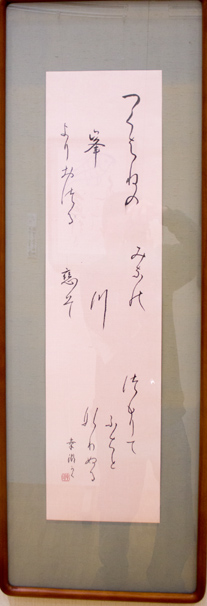 つくはねの
峯
よりおつる
みなの
川
恋そ
つもりて
ふちと
なりぬる